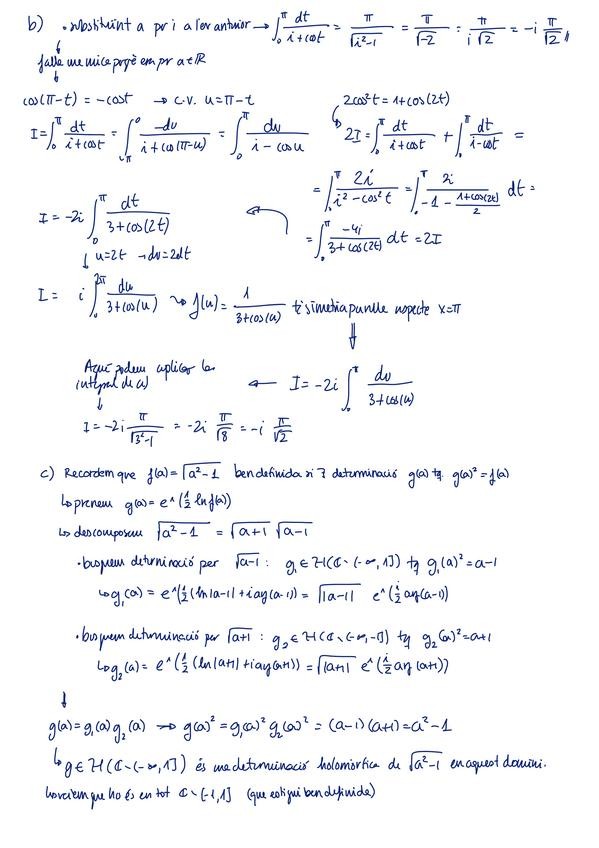 b) • substituint a per i a l'ex anterior → ∫₀^π dt/(i+cost) = π/√(i²-1) = π/√-2 = π/(i√2) = -i π/√2 //
↓
falla una mica perquè era per a∈ℝ
↓
cos(π-t) = -cost → c.v. u=π-t
I = ∫₀^π dt/(i+cost) = ∫_π^0 -du/(i+cos(π-u)) = ∫₀^π du/(i-cosu)
2cos²t = 1+cos(2t)
2I = ∫₀^π dt/(i+cost) + ∫₀^π dt/(i-cost) =
= ∫₀^π 2i/(i²-cos²t) = ∫₀^π 2i/(-1-(1+cos(2t))/2) dt =
= ∫₀^π -4i/(3+cos(2t)) dt = 2I
I = -2i ∫₀^π dt/(3+cos(2t)) ←
↓ u=2t → du=2dt
I = i ∫₀^2π du/(3+cos(u)) ⇝ f(u) = 1/(3+cos(u)) té simetria respecte x=π
⇓
← I = -2i ∫₀^π du/(3+cos(u))
Aquí podem aplicar la
integral de a)
↓
I = -2i π/√(3²-1) = -2i π/√8 = -i π/√2
c) Recordem que f(a) = √(a²-1) ben definida si ∃ determinació g(a) tq g(a)² = f(a)
↳ prenem g(a) = e^(½ ln f(a))
↳ descomposem √(a²-1) = √(a+1) √(a-1)
• busquem determinació per √(a-1) : g₁ ∈ H(ℂ∖(-∞,1]) tq g₁(a)² = a-1
↳ g₁(a) = e^(½(ln|a-1|+iarg(a-1)) = √|a-1| e^(i/2 arg(a-1))
• busquem determinació per √(a+1) : g₂ ∈ H(ℂ∖(-∞,-1]) tq g₂(a)² = a+1
↳ g₂(a) = e^(½(ln|a+1|+iarg(a+1)) = √|a+1| e^(i/2 arg(a+1))
↓
g(a) = g₁(a)g₂(a) ⇝ g(a)² = g₁(a)² g₂(a)² = (a-1)(a+1) = a²-1
↳ g∈H(ℂ∖(-∞,1]) és una determinació holomorfica de √(a²-1) en aquest domini.
que ho és en tot ℂ∖[-1,1] (que estigui ben definida)